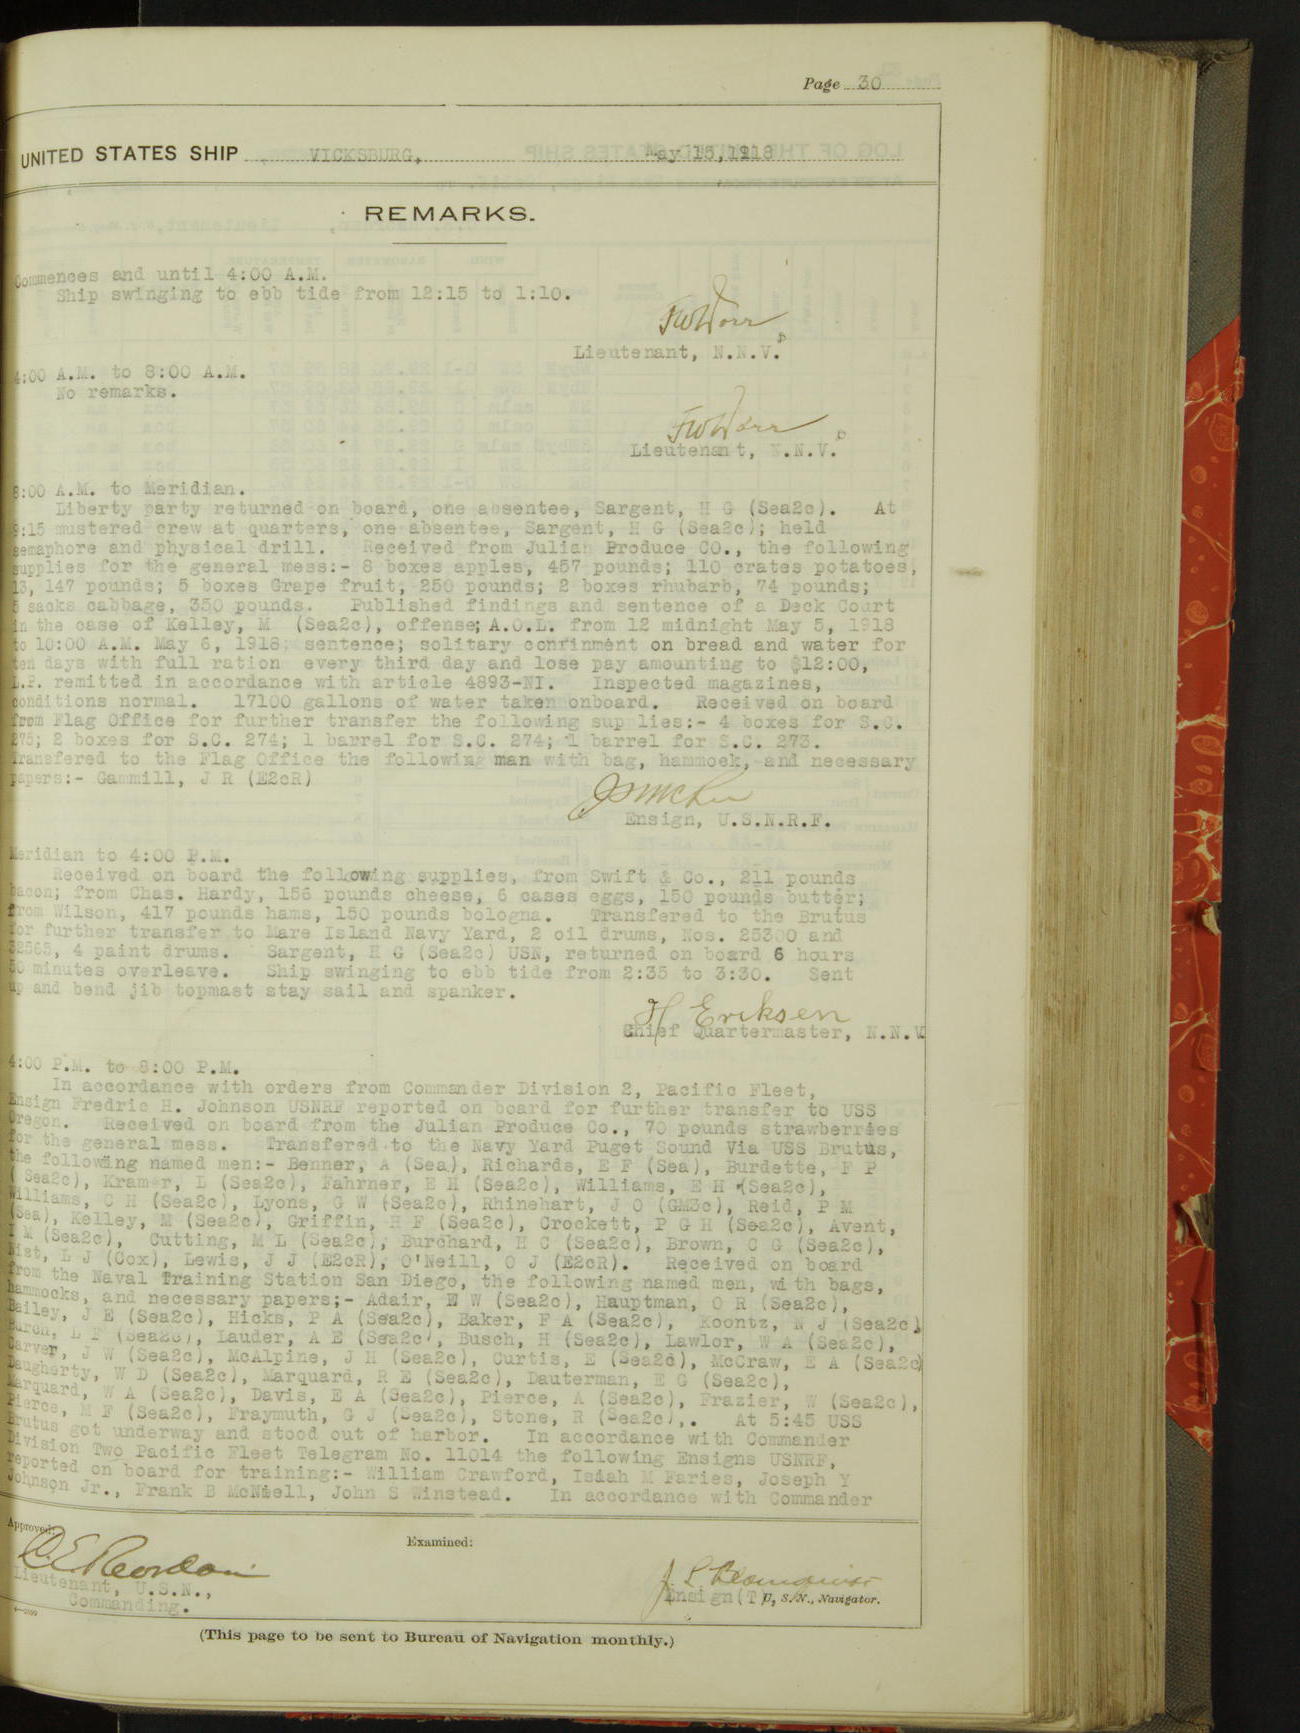 Page 30
UNITED STATES SHIP VICKSBURG, May 15, 1918
REMARKS.
Commences and until 4:00 A.M.
Ship swinging to ebb tide from 12:15 to 1:10.
Lieutenant, N.N.V.
4:00 A.M. to 8:00 A.M.
No remarks.
Lieutenant, N.N.V.
8:00 A.M. to Meridian.
Liberty party returned on board, one absentee, Sargent, H G (Sea2c). At
9:15 mustered crew at quarters, one absentee, Sargent, H G (Sea2c); held
semaphore and physical drill. Received from Julian Produce CO., the following
supplies for the general mess:- 8 boxes apples, 457 pounds; 110 crates potatoes,
13, 147 pounds; 5 boxes Grape fruit, 250 pounds; 2 boxes rhubarb, 74 pounds;
5 sacks cabbage, 350 pounds. Published findings and sentence of a Deck Court
in the case of Kelley, M (Sea2c), offense; A.O.L. from 12 midnight May 5, 1918
to 10:00 A.M. May 6, 1918; sentence; solitary confinment on bread and water for
ten days with full ration every third day and lose pay amounting to $12:00,
L.P. remitted in accordance with article 4893-NI. Inspected magazines,
conditions normal. 17100 gallons of water taken onboard. Received on board
from Flag Office for further transfer the following sup lies:- 4 boxes for S.C.
275; 2 boxes for S.C. 274; 1 barrel for S.C. 274; 1 barrel for S.C. 273.
Transfered to the Flag Office the following man with bag, hammock, and necessary
papers:- Gammill, J R (E2cR)
Ensign, U.S.N.R.F.
Meridian to 4:00 P.M.
Received on board the following supplies, from Swift & Co., 211 pounds
bacon; from Chas. Hardy, 156 pounds cheese, 6 cases eggs, 150 pounds butter;
from Wilson, 417 pounds hams, 150 pounds bologna. Transfered to the Brutus
for further transfer to Mare Island Navy Yard, 2 oil drums, Nos. 25300 and
32565, 4 paint drums. Sargent, H G (Sea2c) USN, returned on board 6 hours
50 minutes overleave. Ship swinging to ebb tide from 2:35 to 3:30. Sent
up and bend jib topmast stay sail and spanker.
H Eriksen
Chief Quartermaster, N.N.V.
4:00 P.M. to 8:00 P.M.
In accordance with orders from Commander Division 2, Pacific Fleet,
Ensign Fredric H. Johnson USNRF reported on board for further transfer to USS
Oregon. Received on board from the Julian Produce Co., 70 pounds strawberries
for the general mess. Transfered to the Navy Yard Puget Sound Via USS Brutus,
the following named men:- Benner, A (Sea), Richards, E F (Sea), Burdette, F P
(Sea2c), Kramer, L (Sea2c), Fahrner, E H (Sea2c), Williams, E H (Sea2c),
Williams, C H (Sea2c), Lyons, G W (Sea2c), Rhinehart, J O (GM3c), Reid, P M
(Sea), Kelley, M (Sea2c), Griffin, H F (Sea2c), Crockett, P G H (Sea2c), Avent,
M (Sea2c), Cutting, M L (Sea2c), Burchard, H C (Sea2c), Brown, C G (Sea2c),
L J (Cox), Lewis, J J (E2cR), O'Neill, O J (E2cR). Received on board
from the Naval Training Station San Diego, the following named men, with bags,
hammocks, and necessary papers;- Adair, E W (Sea2c), Hauptman, O R (Sea2c),
Bailey, J E (Sea2c), Hicks, P A (Sea2c), Baker, F A (Sea2c), Koontz, N J (Sea2c),
Burch, L F (Sea2c), Lauder, A E (Sea2c), Busch, H (Sea2c), Lawlor, W A (Sea2c),
Carver, J W (Sea2c), McAlpine, J H (Sea2c), Curtis, E (Sea2c), McCraw, E A (Sea2c)
Daugherty, W D (Sea2c), Marquard, R E (Sea2c), Dauterman, E G (Sea2c),
Marquard, W A (Sea2c), Davis, E A (Sea2c), Pierce, A (Sea2c), Frazier, W (Sea2c),
Pierce, M F (Sea2c), Fraymuth, G J (Sea2c), Stone, R (Sea2c),. At 5:45 USS
Brutus got underway and stood out of harbor. In accordance with Commander
Division Two Pacific Fleet Telegram No. 11014 the following Ensigns USNRF,
reported on board for training:- William Crawford, Isiah M Faries, Joseph Y
Johnson Jr., Frank B McNiell, John S Winstead. In accordance with Commander
Approved:
Examined:
Lieutenant, U.S.N.,
Commanding.
J. L. Blomquist
Ensign(T) U, S. N., Navigator.
(This page to be sent to Bureau of Navigation monthly.)